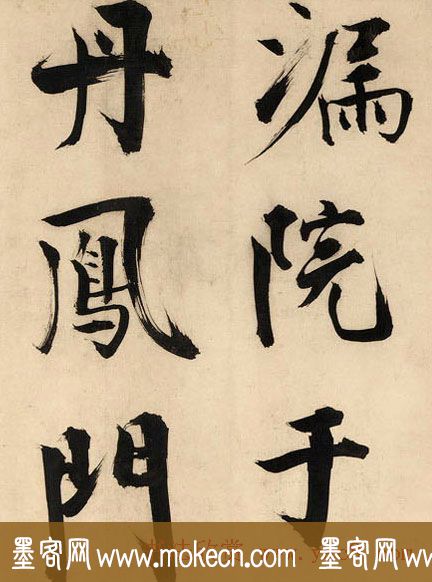 漏院于
丹鳳門
墨客网www.mokecn.com墨客网